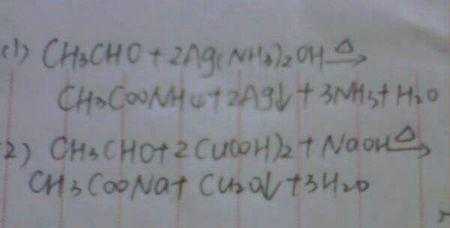 (1) CH₃CHO + 2Ag(NH₃)₂OH △→
CH₃COONH₄ + 2Ag↓ + 3NH₃ + H₂O
2) CH₃CHO + 2Cu(OH)₂ + NaOH △→
CH₃COONa + Cu₂O↓ + 3H₂O